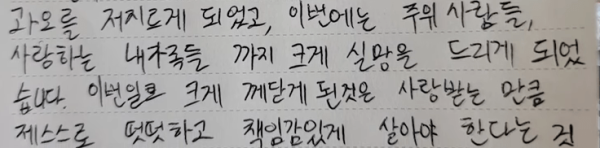 과오를 저지르게 되었고, 이번에는 주위 사람들,
사랑하는 내가족들 까지 크게 실망을 드리게 되었
습니다. 이번일로 크게 깨닫게 된것은 사랑받는 만큼
제스스로 떳떳하고 책임감있게 살아야 한다는 것